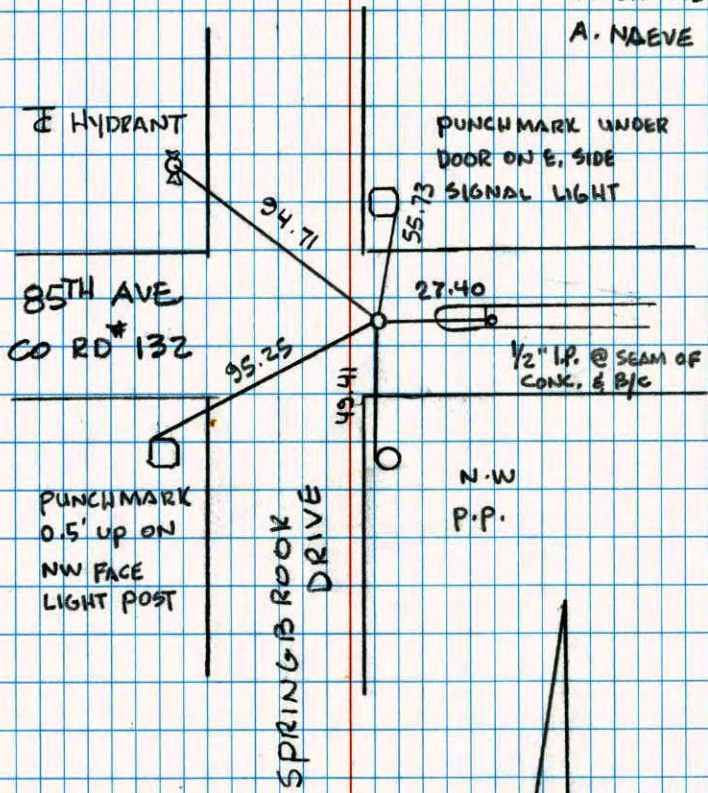 A. NAEVE
℄ HYDRANT
PUNCHMARK UNDER
DOOR ON E. SIDE
SIGNAL LIGHT
94.71
55.73
85TH AVE
CO RD # 132
27.40
95.25
1/2" I.P. @ SEAM OF
CONC. & B/C
49.41
PUNCHMARK
0.5' UP ON
NW FACE
LIGHT POST
N.W
P.P.
SPRINGBROOK
DRIVE